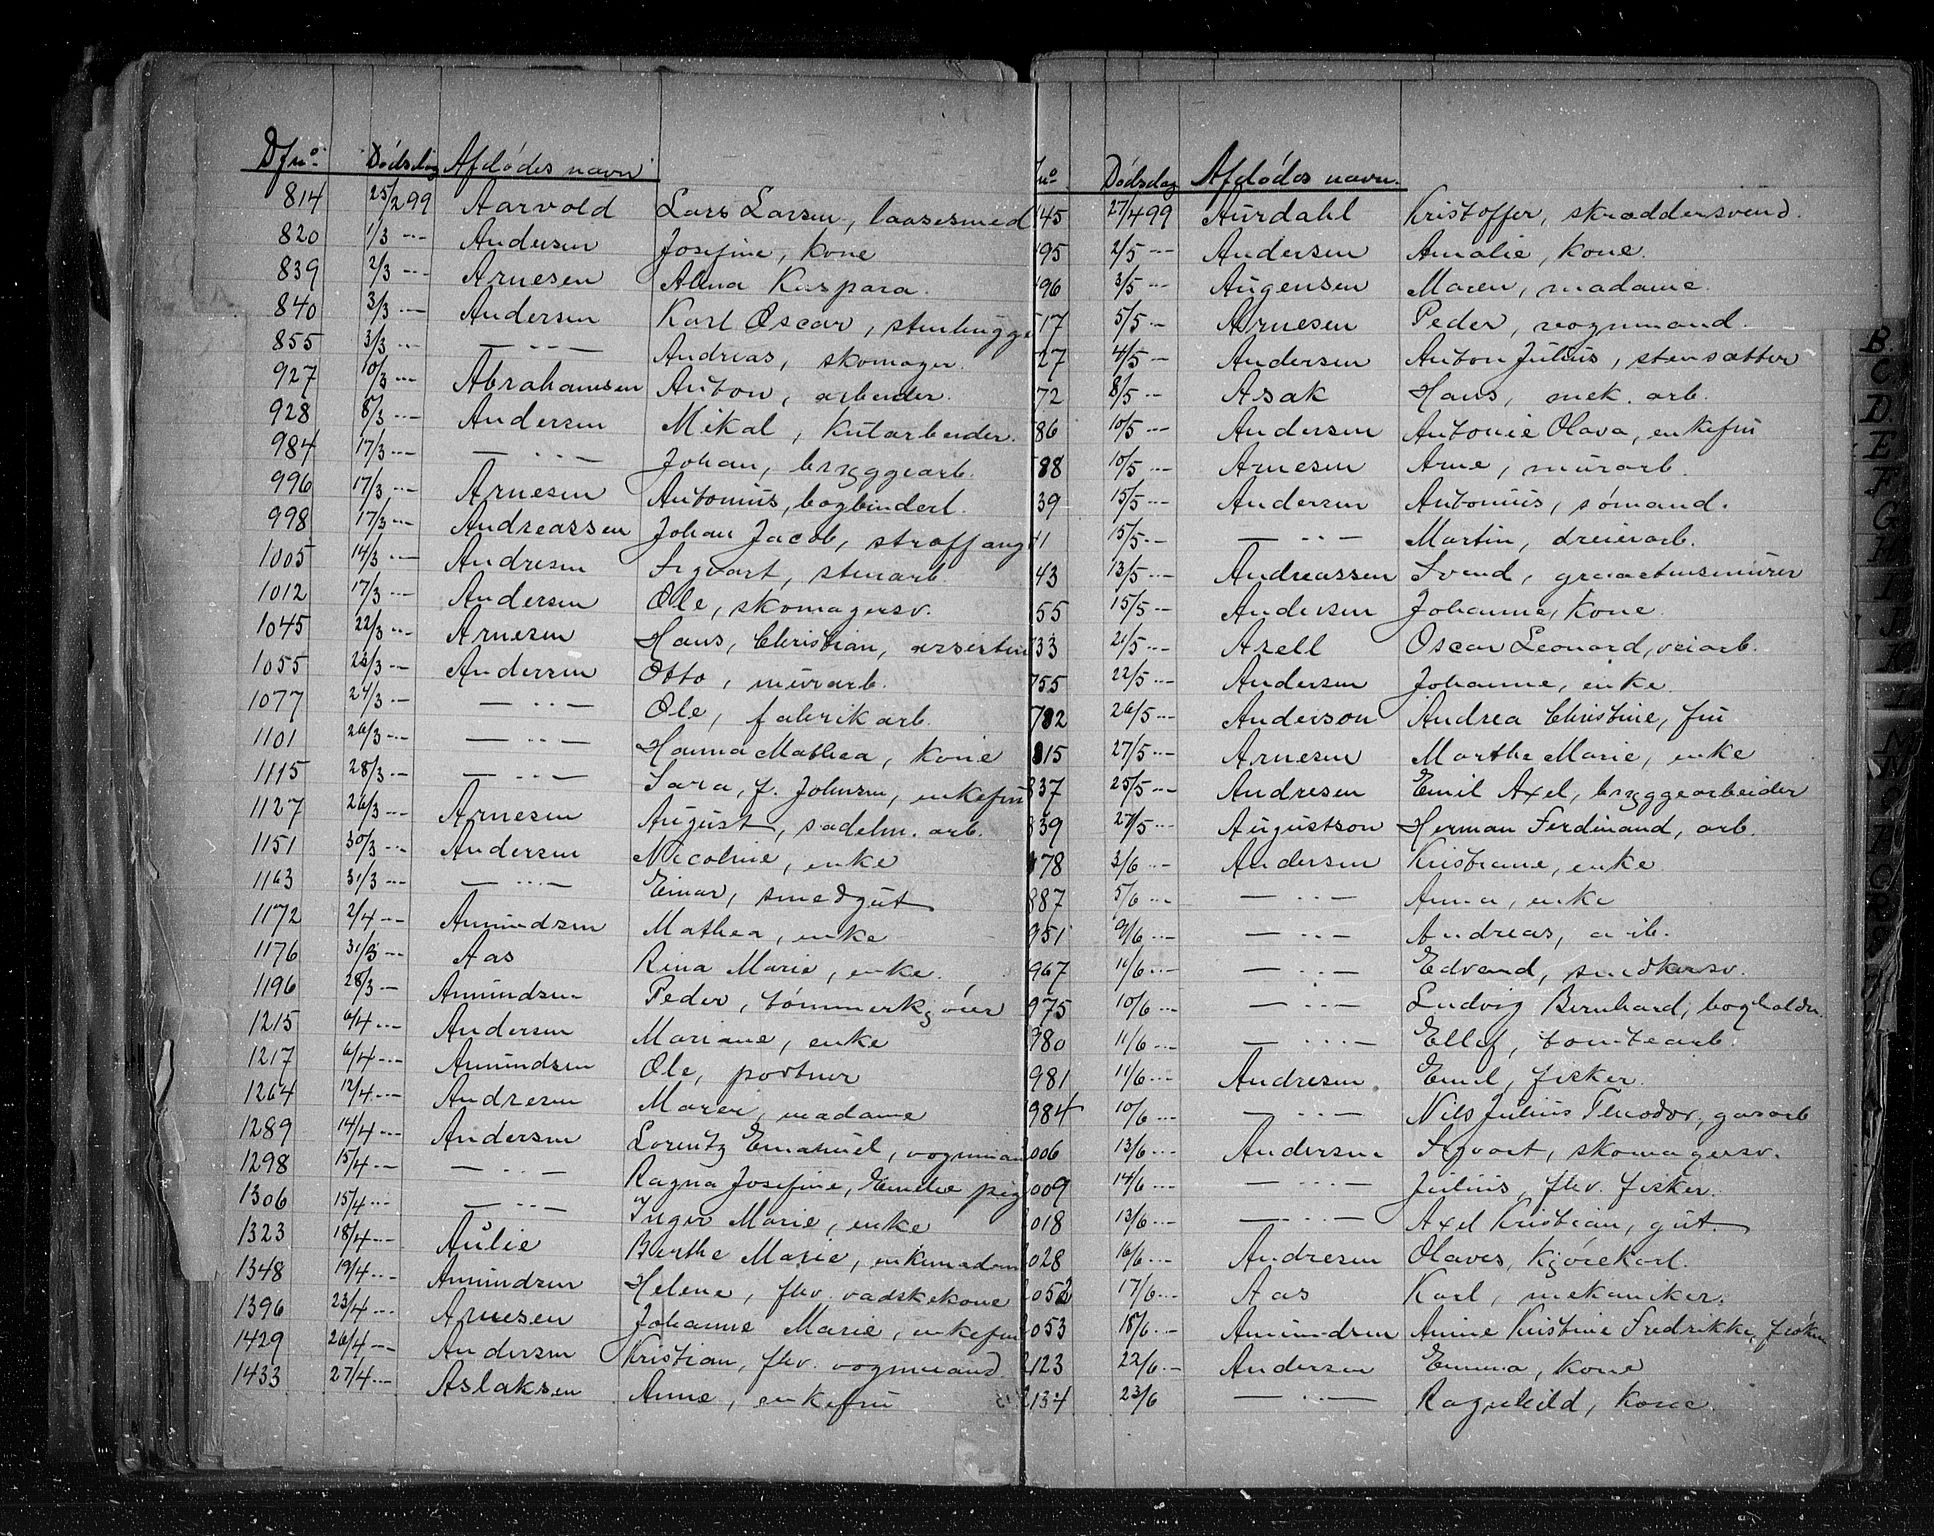 Dfno. Dödsdag Afdödes navn
814 25/2 99 Aarvold Lars Larsen, laasesmed
820 1/3 -"- Andersen Josefine, kone
839 2/3 -"- Arnesen Alma Kaspara.
840 3/3 -"- Andersen Karl Oscar, stenhugge
855 3/3 -"- — " — Andreas, skomager.
927 10/3 -"- Abrahamsen Anton, arbeider.
928 8/3 -"- Andersen Mikal, hutarbeider.
984 17/3 -"- — " — Johan, bryggearb.
996 17/3 -"- Arnesen Antonius, bogbinderl.
998 17/3 -"- Andreassen Johan Jacob, straffange
1005 14/3 -"- Andresen Sigvart, stenarb.
1012 17/3 -"- Andersen Ole, skomagersv.
1045 22/3 -"- Arnesen Hans, Christian, assisten
1055 23/3 -"- Andersen Otto, murarb.
1077 24/3 -"- — " — Ole, fabrikarb.
1101 26/3 -"- — " — Hanna Mathea, kone
1115 28/3 -"- — " — Sara, f. Johnsen, enkefru
1127 26/3 -"- Arnesen August, sadelm. arb.
1151 30/3 -"- Andersen Nicoline, enke
1163 31/3 -"- — " — Einar, smedgut
1172 2/4 -"- Amundsen Mathea, enke
1176 31/3 -"- Aas Rina Marie, enke.
1196 28/3 -"- Amundsen Peder, tømmerkjører
1215 6/4 -"- Andersen Mariane, enke
1217 6/4 -"- Amundsen Ole, portner
1264 12/4 -"- Andresen Maren, madame
1289 14/4 -"- Andersen Lorentz Emanuel, vognman
1298 15/4 -"- — " — Ragna Josefine, Emelie pig
1306 15/4 -"- — " — Inger Marie, enke
1323 18/4 -"- Aulie Berthe Marie, enkemadam
1348 19/4 -"- Amundsen Helene, fhv. vadskekone
1396 23/4 -"- Arnesen Johanne Marie, enkefru
1429 26/4 -"- Andersen Kristian, fhv. vognmand
1433 27/4 -"- Aslaksen Anne, enkefru
no. Dödsdag Afdödes navn.
45 27/4 99 Aurdahl Kristoffer, skræddersvend.
95 2/5 -"- Andersen Amalie, kone.
96 3/5 -"- Augensen Maren, madame.
17 5/5 -"- Arnesen Peder, vognmand.
27 4/5 -"- Andersen Anton Julius, stensætter
72 8/5 -"- Asak Hans, mek. arb.
86 10/5 -"- Andersen Antonie Olava, enkefru
88 10/5 -"- Arnesen Arne, murarb.
39 15/5 -"- Andersen Antonius, sømand.
1 15/5 -"- — " — Martin, dreierarb.
43 13/5 -"- Andreassen Svend, graastensmurer
55 15/5 -"- Andersen Johanne, kone.
33 21/5 -"- Axell Oscar Leonard, veiarb.
755 22/5 -"- Andersen Johanne, enke
782 26/5 -"- Anderson Andrea Christine, fru
815 27/5 -"- Arnesen Marthe Marie, enke
837 25/5 -"- Andresen Emil Axel, bryggearbeider
839 27/5 -"- Augustson Herman Ferdinand, arb.
878 3/6 -"- Andersen Kristiane, enke
887 5/6 -"- — " — Anna, enke
951 9/6 -"- — " — Andreas, arb.
967 11/6 -"- — " — Edvard, snedkersv.
975 10/6 -"- — " — Ludvig Bernhard, bogholder.
980 11/6 -"- — " — Ellef, tomtearb.
981 11/6 -"- Andresen Emil, fisker.
984 10/6 -"- — " — Nils Julius Theodor, gasarb
006 13/6 -"- Andersen Sigvart, skomagersv.
009 14/6 -"- — " — Julius, fhv. fisker.
018 13/6 -"- — " — Axel Kristian, gut.
028 16/6 -"- Andresen Olaves, kjørekarl.
052 17/6 -"- Aas Karl, mekaniker.
053 18/6 -"- Amundsen Anine Kristine Fredrikke,
123 22/6 -"- Andersen Emma, kone
134 23/6 — " — Ragnhild, kone.
B.
C.
D.
E
F
G
H
I
J
K
L
M
N
O